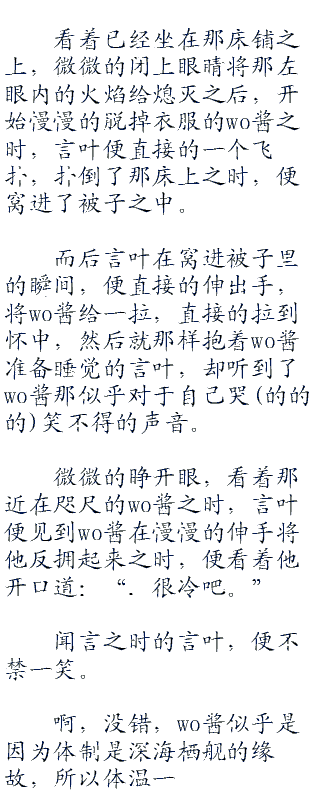 看着已经坐在那床铺之
上，微微的闭上眼睛将那左
眼内的火焰给熄灭之后，开
始慢慢的脱掉衣服的wo酱之
时，言叶便直接的一个飞
扑，扑倒了那床上之时，便
窝进了被子之中。
而后言叶在窝进被子里
的瞬间，便直接的伸出手，
将wo酱给一拉，直接的拉到
怀中，然后就那样抱着wo酱
准备睡觉的言叶，却听到了
wo酱那似乎对于自己哭(的的
的)笑不得的声音。
微微的睁开眼，看着那
近在咫尺的wo酱之时，言叶
便见到wo酱在慢慢的伸手将
他反拥起来之时，便看着他
开口道：“．很冷吧。”
闻言之时的言叶，便不
禁一笑。
啊，没错，wo酱似乎是
因为体制是深海栖舰的缘
故，所以体温一